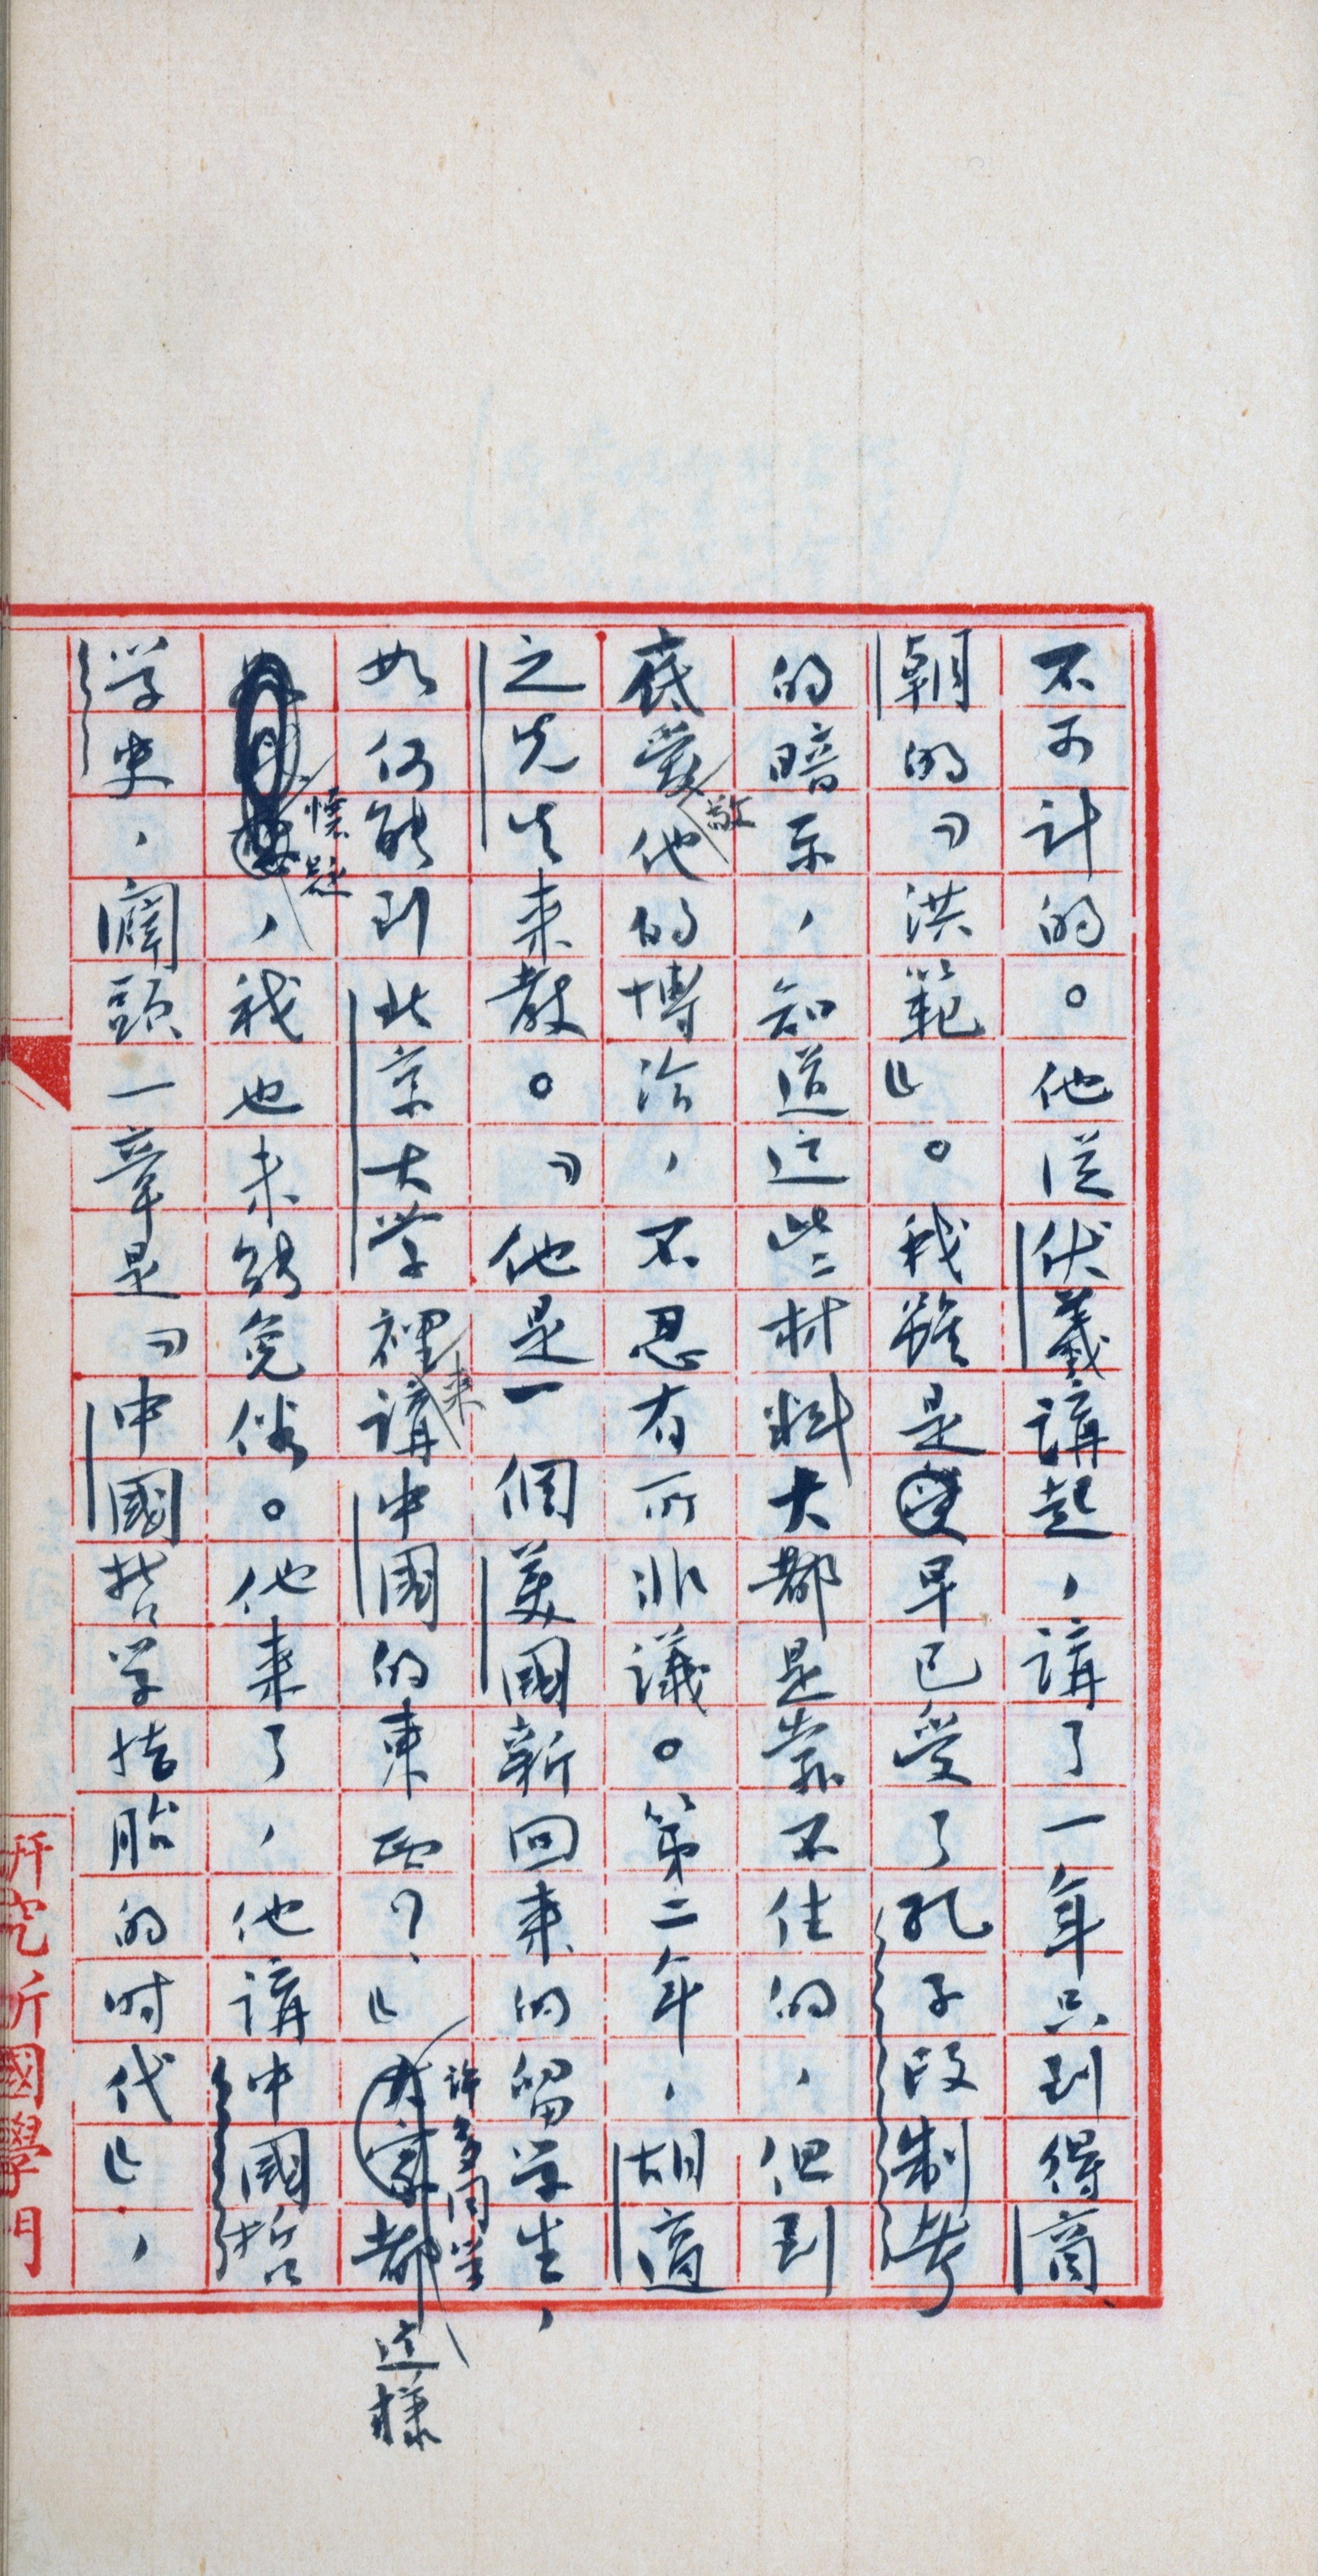 不可计的。他従伏羲講起，講了一年只到得商
朝的「洪範」。我雖是早已受了孔子改制考
的暗示，知道这些材料大都是靠不住的，但到
底愛敬他的博洽，不忍有所非議。第二年，胡適
之先生来教。「他是一個美國新回来的留学生，
如何能到北京大学裡来講中國的東西？」許多同学都这樣
懷疑，我也未能免俗。他来了，他講中國哲
学史，闢頭一章是「中國哲学结胎的时代」，
研究所國學門